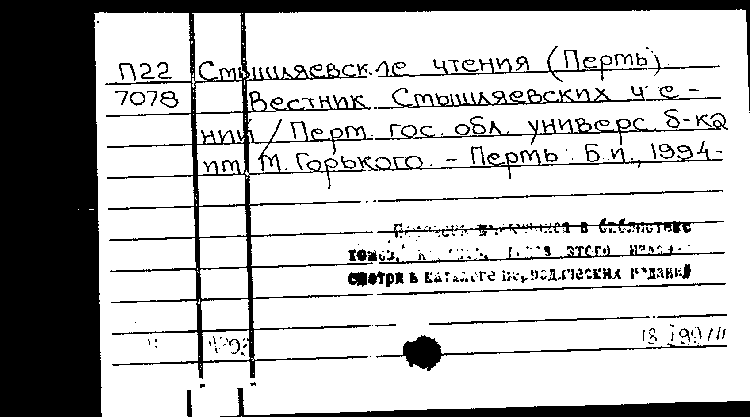 П22 Стышляевские чтения (Пермь)
7078 Вестник Стышляевских чте-
ний / Перм. гос. обл. универс. б-ка
им. М. Горького. - Пермь: Б.и., 1994-
в библиотеке
этого
смотри в каталоге периодических изданий